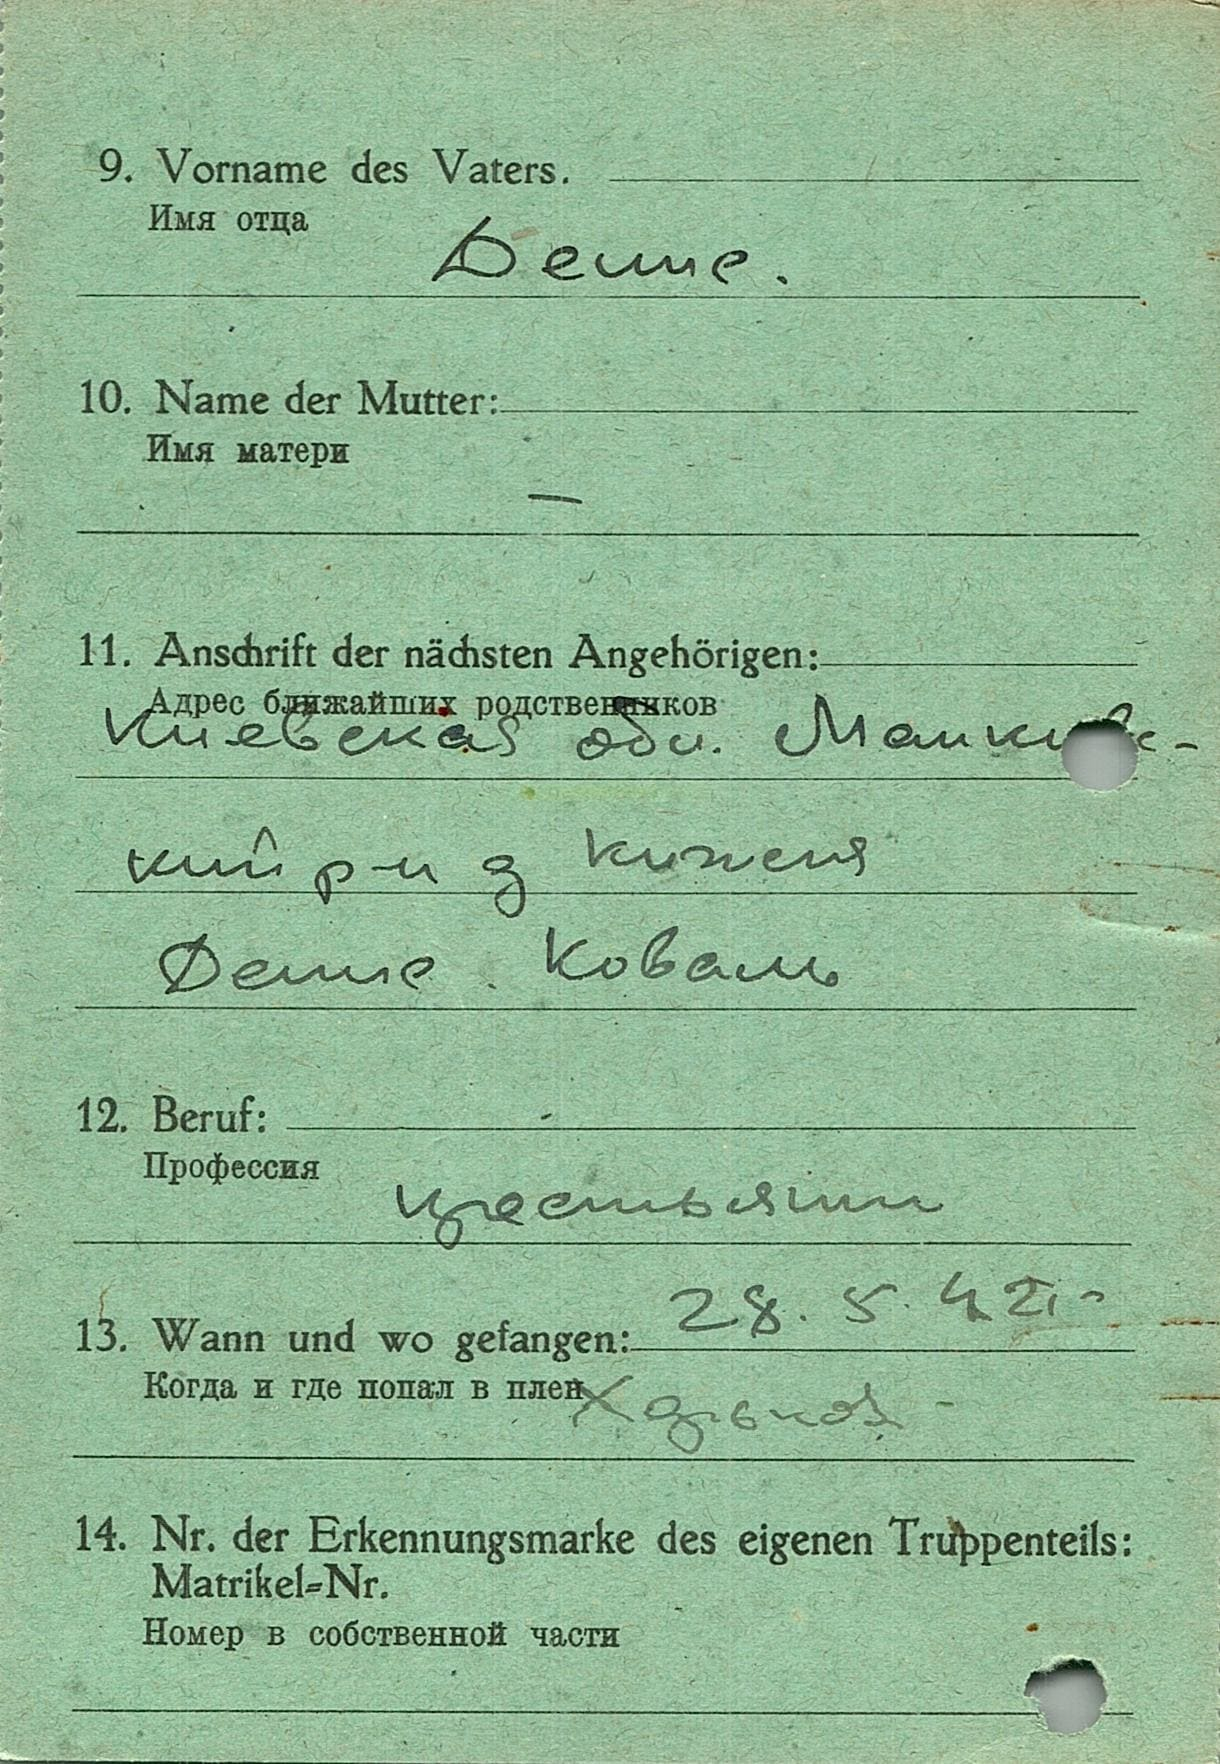 9. Vorname des Vaters.
Имя отца
Демис.
10. Name der Mutter:
Имя матери
—
11. Anschrift der nächsten Angehörigen:
Адрес ближайших родственников
Киевская обл. Маньк
кий р-н д
Демис Коваль
12. Beruf:
Профессия
крестьянин
13. Wann und wo gefangen: 28. 5. 42
Когда и где попал в плен Харьков
14. Nr. der Erkennungsmarke des eigenen Truppenteils:
Matrikel-Nr.
Номер в собственной части